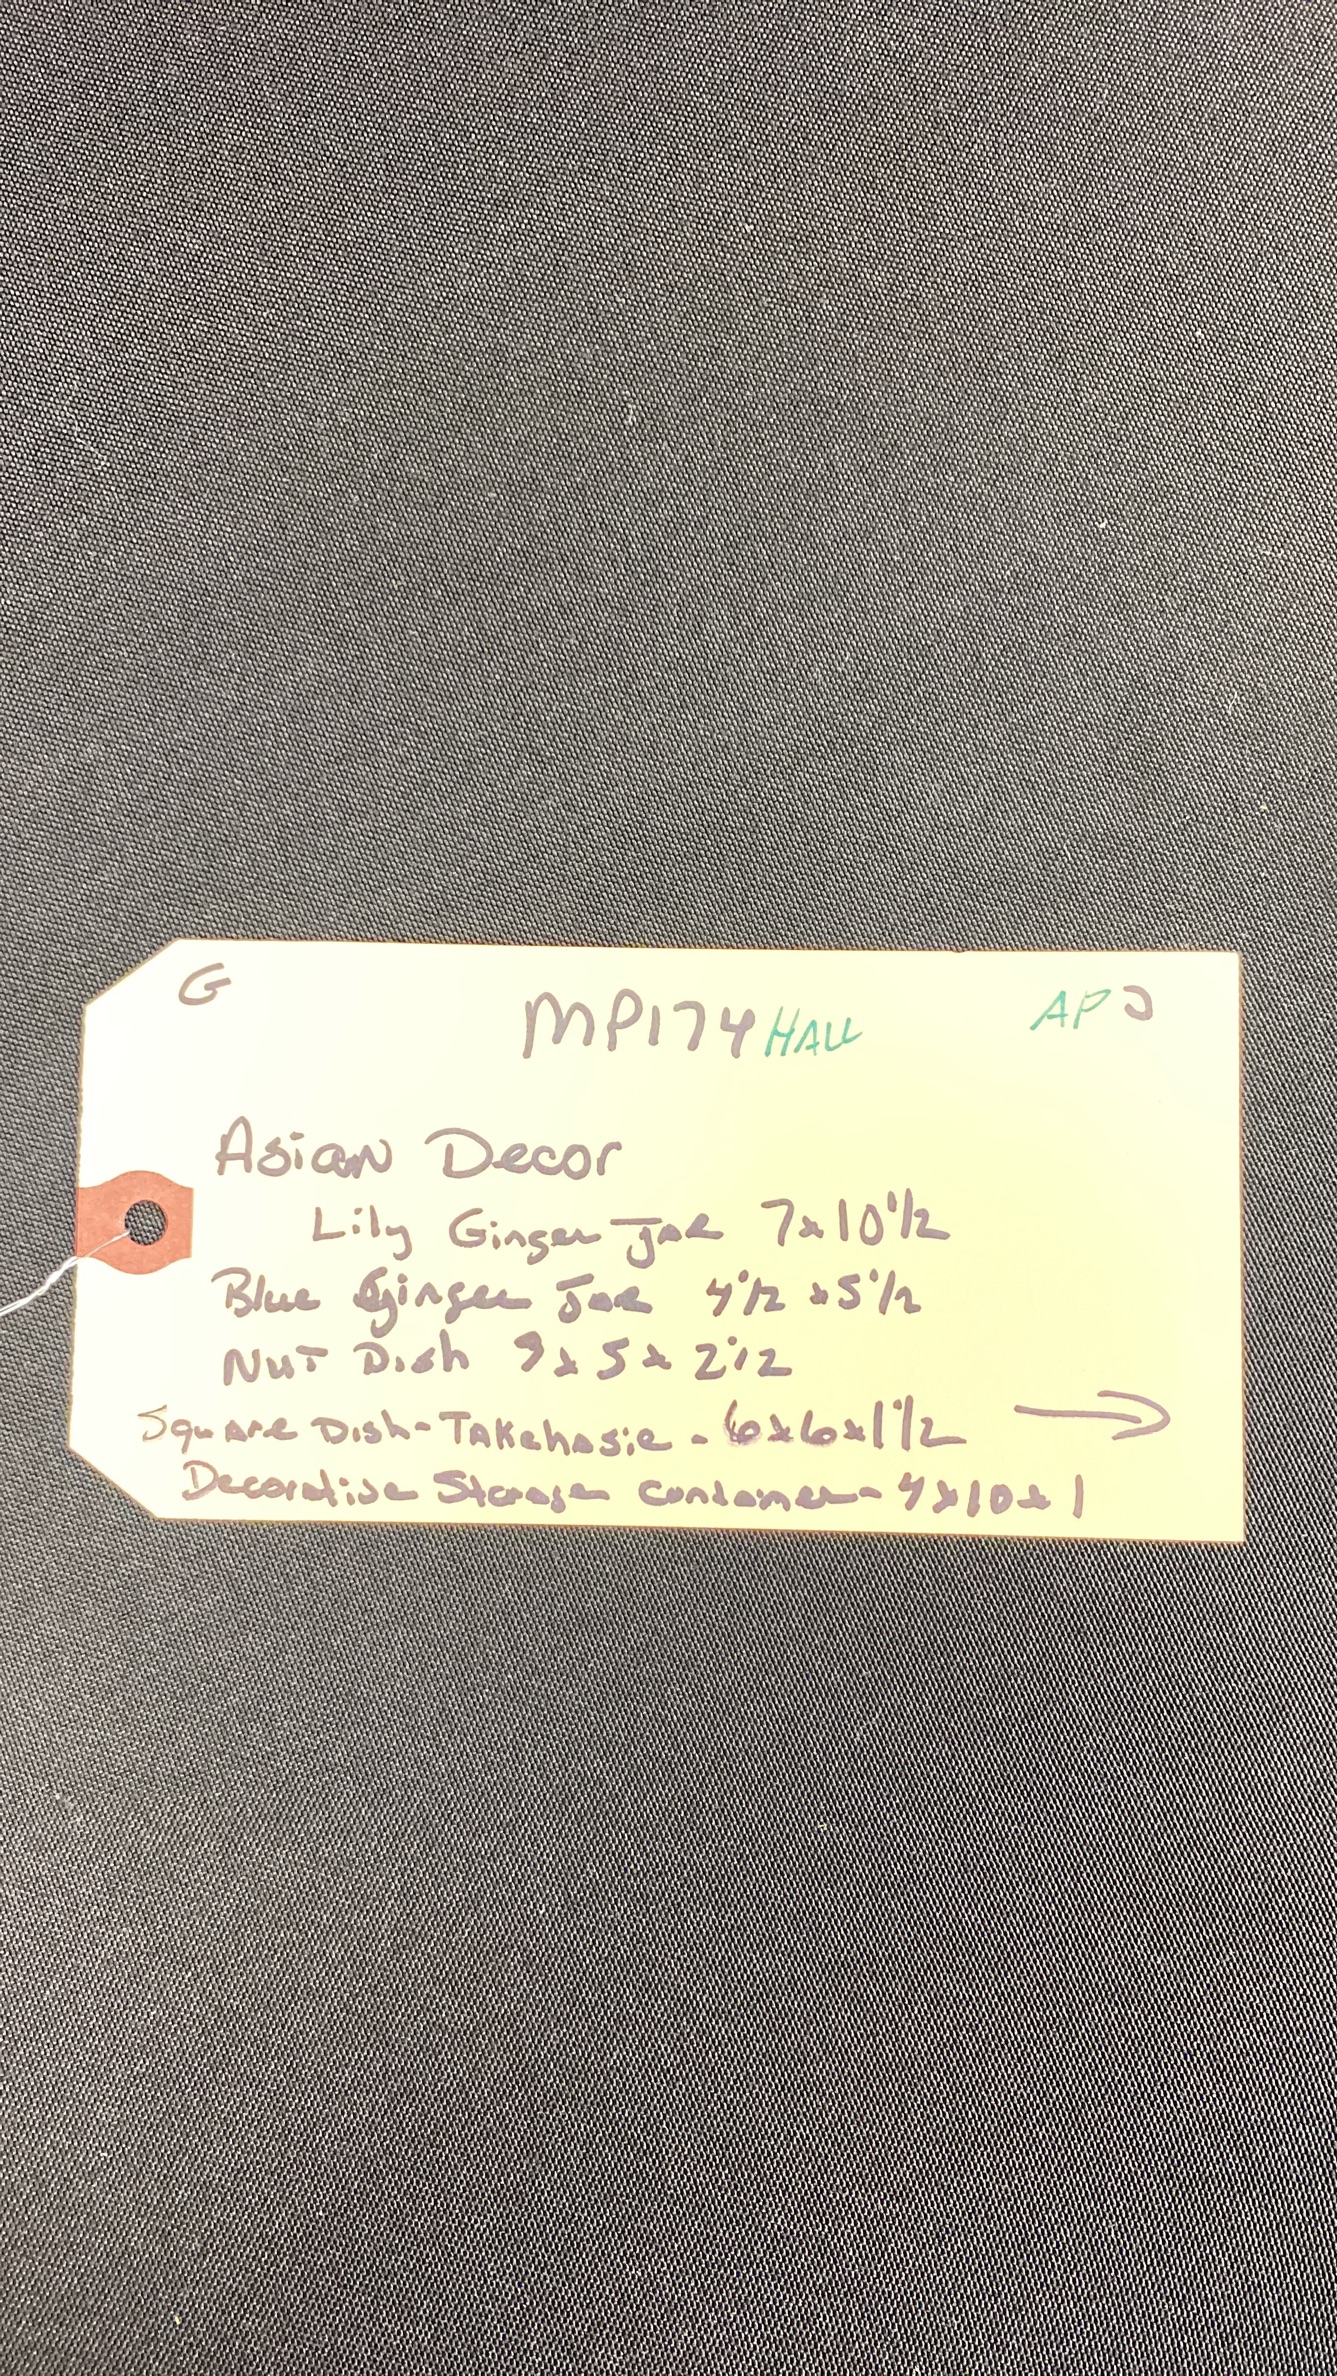 G MP174 HALL AP J
Asian Decor
Lily Ginger Jar 7x10 1/2
Blue Ginger Jar 4 1/2 x 5 1/2
Nut Dish 9 x 5 x 2 1/2
Square Dish - Takehasie - 6x6x1 1/2 →
Decorative Storage Container - 4x10x1